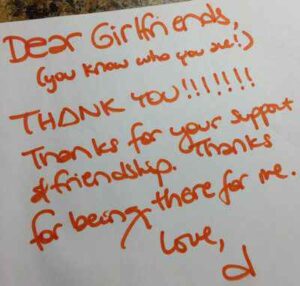 Dear Girlfriends,
(you know who you are!)
THANK YOU!!!!!!!
Thanks for your support
& friendship. Thanks
for being there for me.
Love,
d